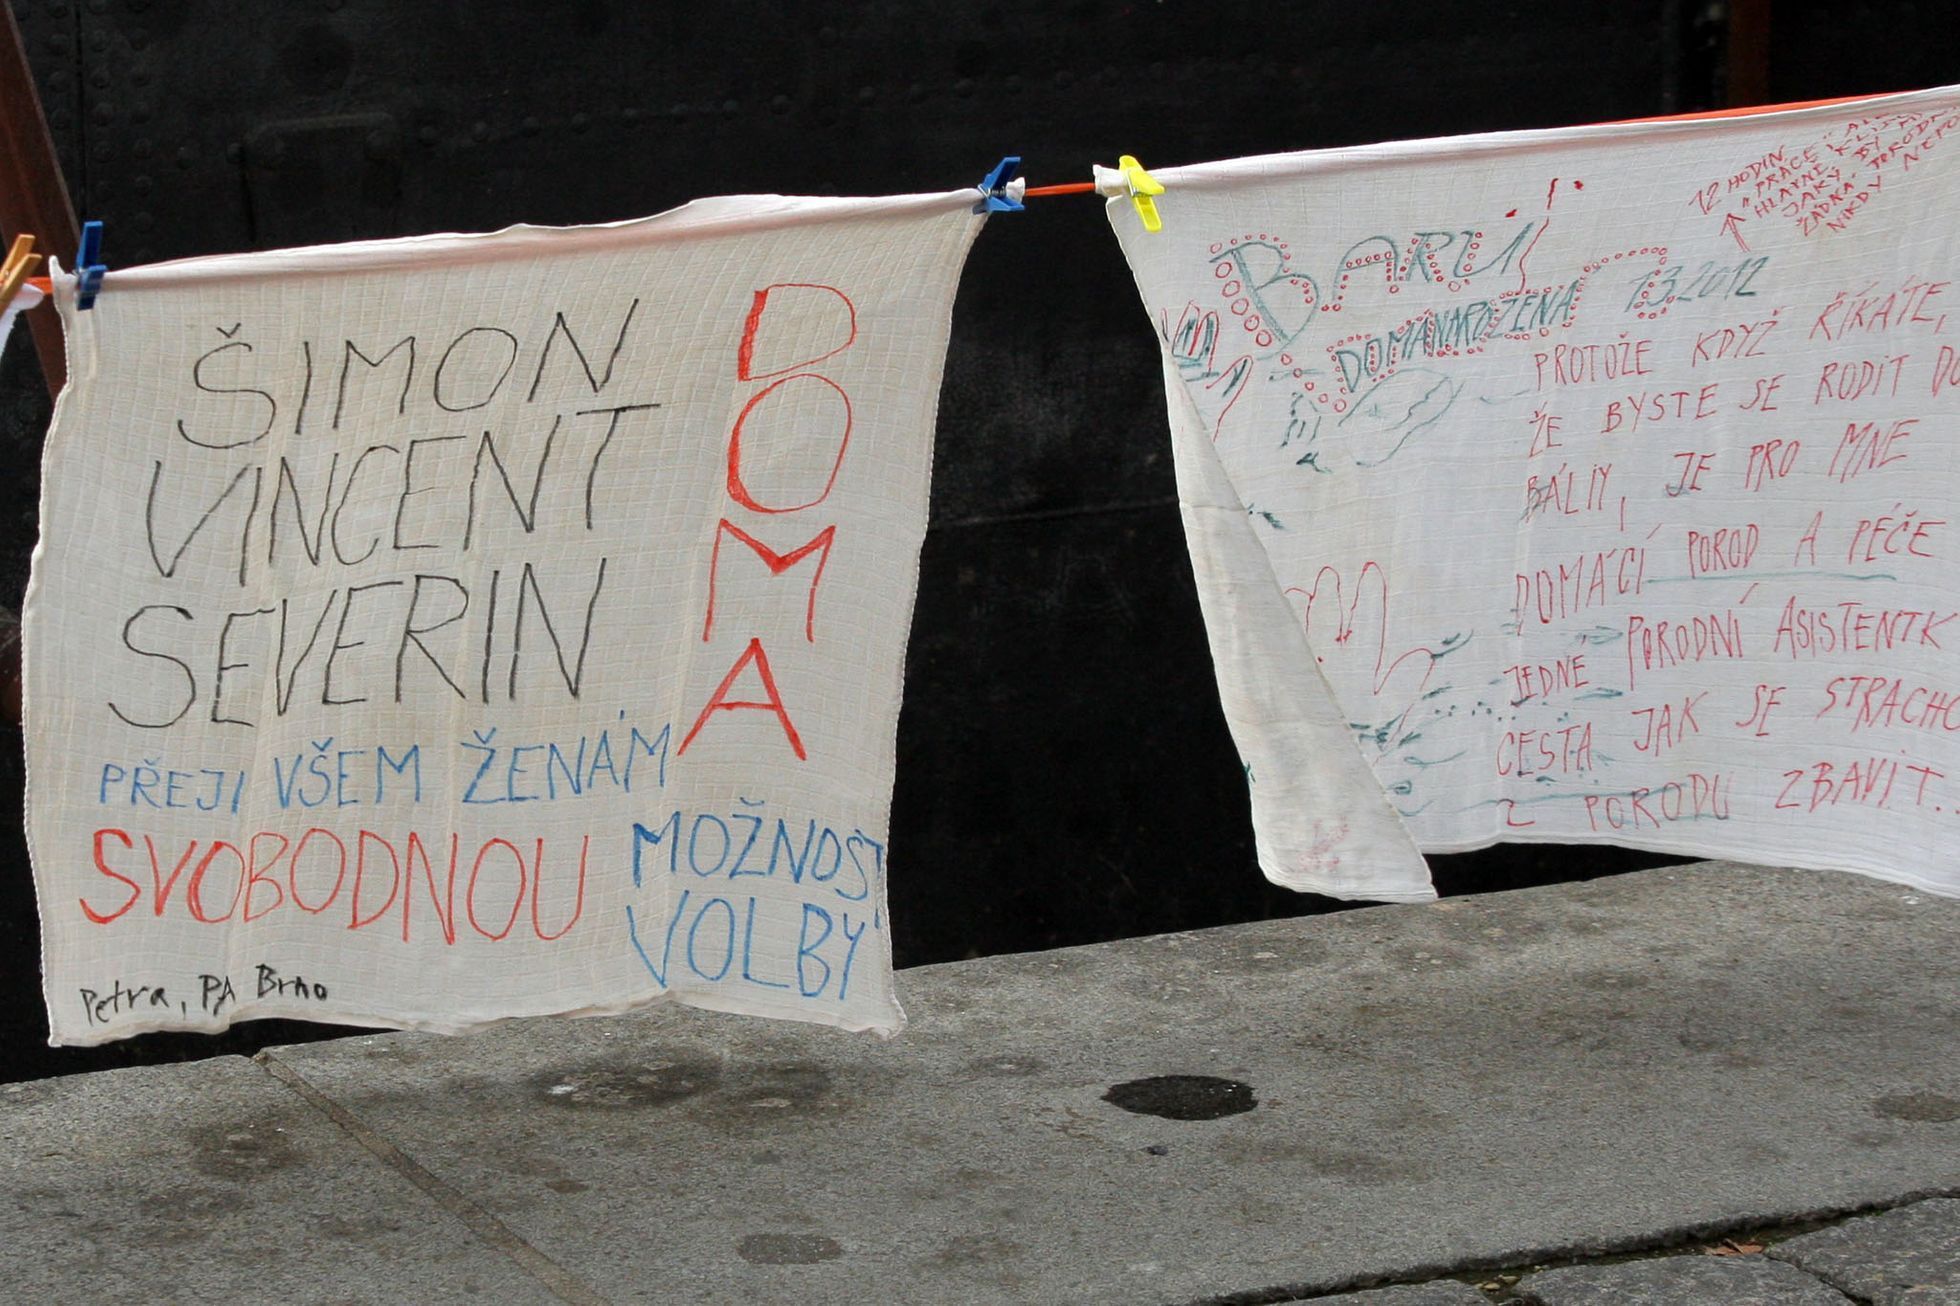 ŠIMON
VINCENT
SEVERIN
DOMA
PŘEJI VŠEM ŽENÁM
SVOBODNOU MOŽNOST
VOLBY
Petra, PA Brno
BARU
DOMA NAROZENA 1.3.2012
12 HODIN
"PRÁCE"
HLAVNĚ
JAKÝ BY
ŽÁDNÁ
NIKDY
PROTOŽE KDYŽ ŘÍKÁTE,
ŽE BYSTE SE RODIT DO
BÁLIY, JE PRO MNE
DOMÁCÍ POROD A PÉČE
JEDNÉ PORODNÍ ASISTENTK
CESTA JAK SE STRACHU
Z PORODU ZBAVIT.